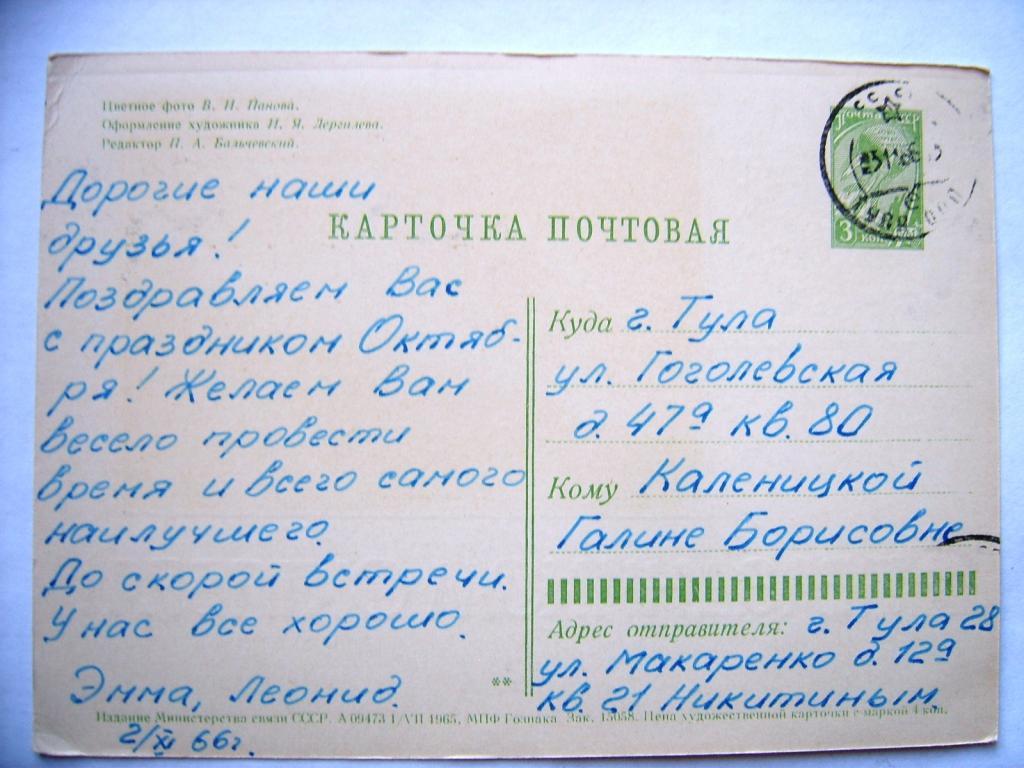 Цветное фото В. И. Панова.
Оформление художника И. Я. Дергилева.
Редактор П. А. Бальчевский.
ПОЧТА СССР
3 КОП
КАРТОЧКА ПОЧТОВАЯ
Дорогие наши
друзья!
Поздравляем Вас
с праздником Октяб-
ря! Желаем Вам
весело провести
время и всего самого
наилучшего.
До скорой встречи.
У нас все хорошо.
Эмма, Леонид.
2/XI 66г.
Куда г. Тула
ул. Гоголевская
д. 47а кв. 80
Кому Каленицкой
Галине Борисовне
Адрес отправителя: г. Тула 28
ул. Макаренко д. 12а
кв. 21 Никитиным
**
Издание Министерства связи СССР. А 09473 1/VII 1965. МПФ Гознака Зак. 15058. Цена художественной карточки с маркой 4 коп.